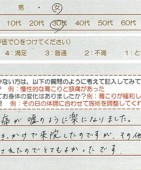 男 ・ 女
10代 20代 30代 40代 50代
評価で○をつけてください
4：満足 3：普通 2：不満 1：と
ない方は、以下の質問のように考えて記入してみて
例）慢性的な肩こりと頭痛
お身体の変化はありましたか？ 例）肩こりが軽減し
例）その日の体調に合わせて施術を調整してくれ
痛が嘘のように楽になりました。
きっかけで来院したのですが、その他
されたのでとてもよかったです。